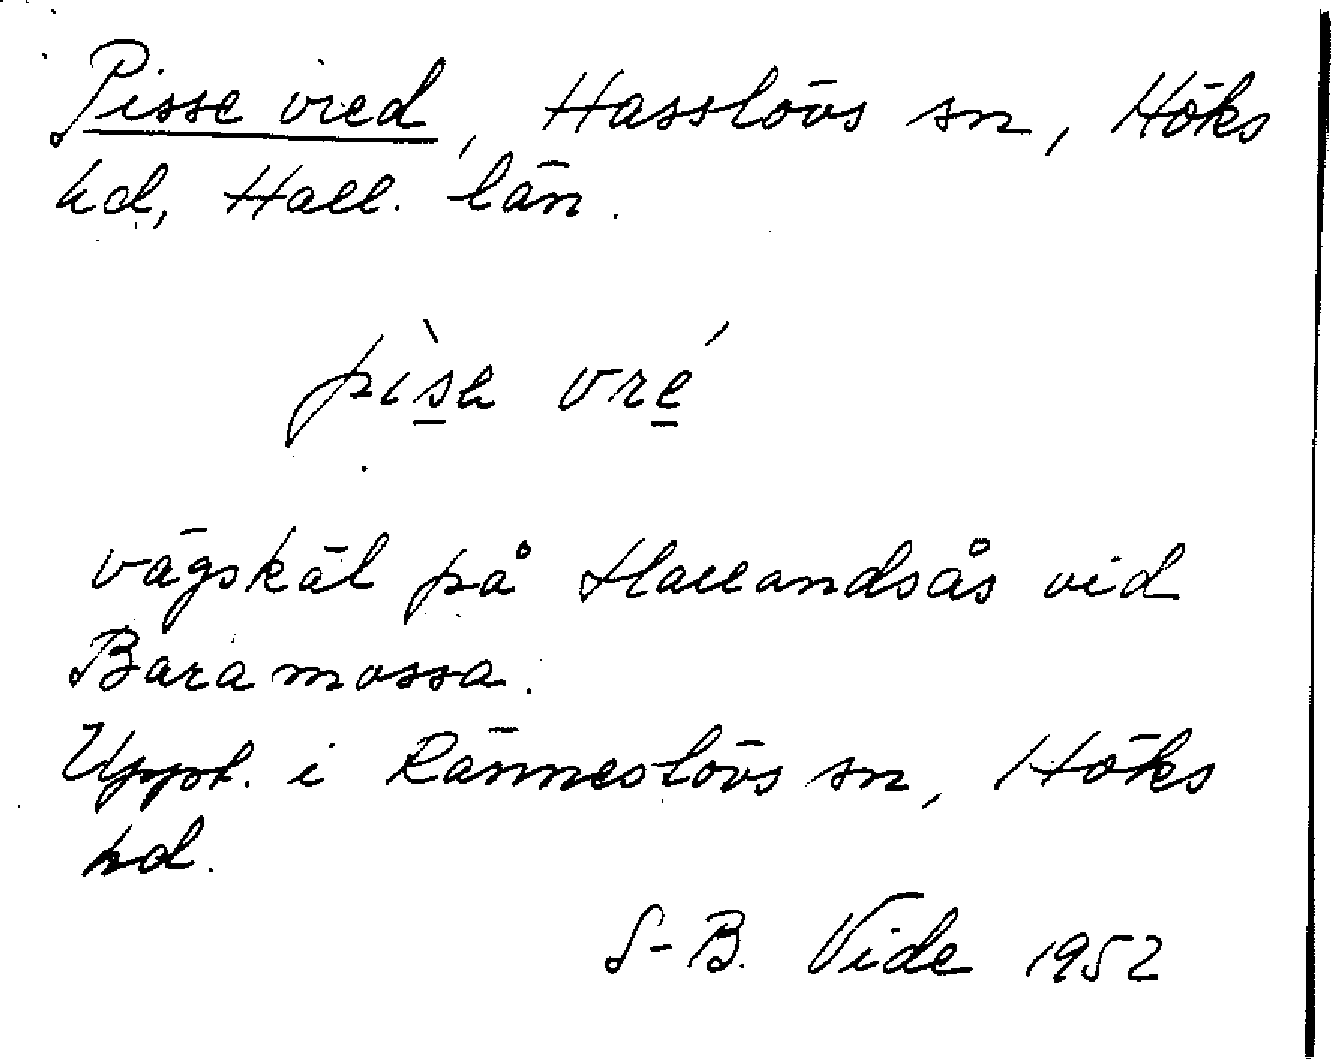 Pisse vred, Hasslövs sn, Höks
hd, Hall. län.
pìsə vré
vägskäl på Hallandsås vid
Bara mossa.
Uppt. i Ränneslövs sn, Höks
hd.
S-B. Vide 1952